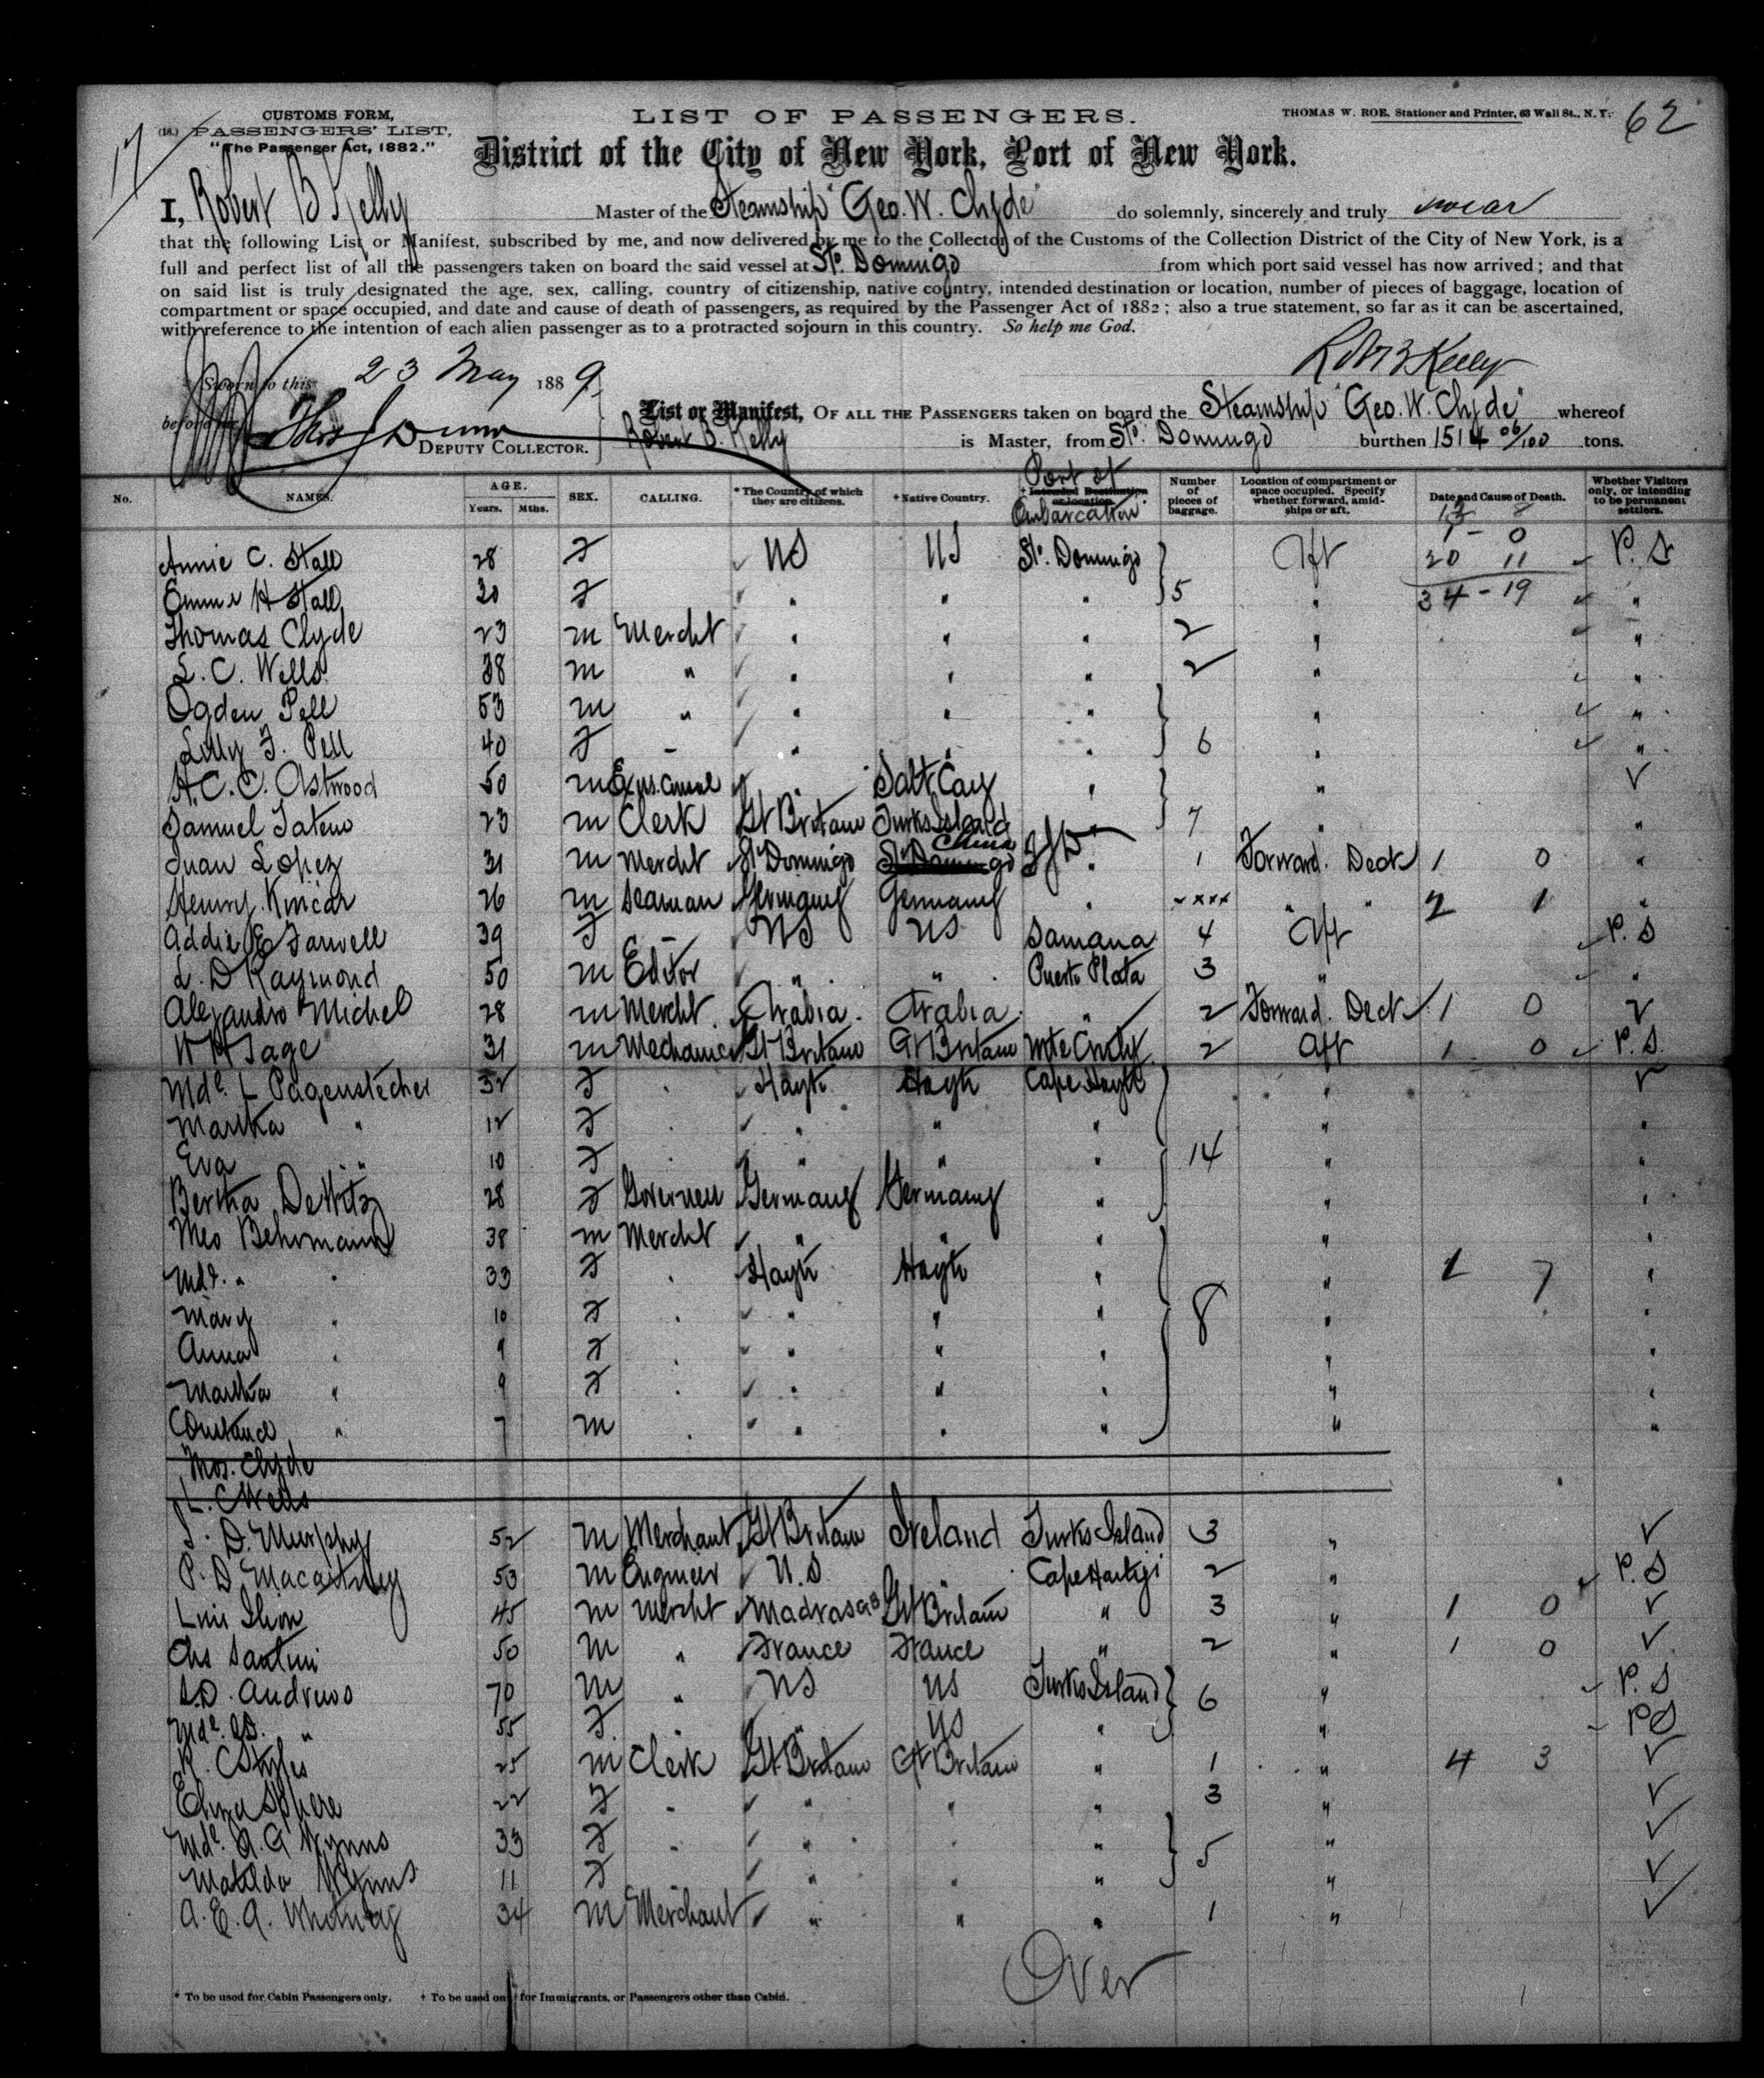 CUSTOMS FORM,
LIST OF PASSENGERS.
THOMAS W. ROE, Stationer and Printer, 63 Wall St., N. Y.
62
17
PASSENGERS' LIST,
"The Passenger Act, 1882."
District of the City of New York, Port of New York.
I, Robert B Kelly Master of the Steamship "Geo. W. Clyde" do solemnly, sincerely and truly swear
that the following List or Manifest, subscribed by me, and now delivered by me to the Collector of the Customs of the Collection District of the City of New York, is a
full and perfect list of all the passengers taken on board the said vessel at Sto. Domingo from which port said vessel has now arrived; and that
on said list is truly designated the age, sex, calling, country of citizenship, native country, intended destination or location, number of pieces of baggage, location of
compartment or space occupied, and date and cause of death of passengers, as required by the Passenger Act of 1882; also a true statement, so far as it can be ascertained,
with reference to the intention of each alien passenger as to a protracted sojourn in this country. So help me God.
Robt B Kelly
Sworn to this 23 May 1889
before me
Thos J Dunn
DEPUTY COLLECTOR.
List or Manifest, OF ALL THE PASSENGERS taken on board the Steamship "Geo. W. Clyde" whereof
Robert B. Kelly is Master, from Sto. Domingo burthen 1514 06/100 tons.
No. NAMES. AGE. Years. Mths. SEX. CALLING. * The Country of which they are citizens. † Native Country. † Intended Destination or location. Port of Embarcation Number of pieces of baggage. Location of compartment or space occupied. Specify whether forward, amidships or aft. Date and Cause of Death. Whether Visitors only, or intending to be permanent settlers.
13 8
1 - 0
Annie C. Stall 28 F US US Sto. Domingo Aft 20 11 P. S
Emme H Stall 30 F " " " 5 " 34 - 19 "
Thomas Clyde 23 M Mercht " " " 2 " "
L. C. Wells 38 M " " " " 2 " "
Ogden Pell 53 M " " " " " "
Lilly F. Pell 40 F - " " " 6 " "
H. C. C. Astwood 50 M " Salt Cay " " V
Samuel Tatem 23 M Clerk Gt Britain Turks Island " 7 " "
Juan Lopez 31 M Mercht Sto Domingo Sto Domingo China " 1 Forward. Deck 1 0 "
Henry Kincar 26 M Seaman Germany Germany " xxxx " " 2 1 "
Addie E Farwell 39 F - US US Samana 4 Aft P. S
L. D Raymond 50 M Editor " " Puerto Plata 3 " "
Alejandro Michel 28 M Mercht. Arabia. Arabia. " 2 Forward. Deck 1 0 V
W H Sage 31 M Mechanic Gt Britain Gt Britain 2 Aft 1 0 P. S.
Mde. L Pagenstecher 32 F Hayti Hayti Cape Hayti " V
Martha " 12 F " " " " "
Eva " 10 F " " " 14 " "
Bertha DeWitz 28 F Governess Germany Germany " " "
Behrmann 38 M Mercht " " " " "
Mde. " " 33 F Hayti Hayti " " 1 7 "
Mary " 10 F " " " 8 " "
Anna " 9 F " " " " "
Martha " 9 F " " " " "
Constance " 7 M " " " " "
Clyde
L. C Wells
D. Murphy 52 M Merchant Gt Britain Ireland Turks Island 3 " V
P. D Macartney 53 M Engineer U.S " 2 " P. S
45 M Mercht Gt Britain " 3 " 1 0 V
Chs Santini 50 M " France France " 2 " 1 0 V
S.D. Andrews 70 M " US US Turks Island 6 " P. S
Mde. S.D. " 55 F " " US " " PS
R. C Styles 25 M Clerk Gt Britain Gt Britain " 1 " 4 3 V
22 F - " " " 3 " V
Mde. A. G Wynns 33 F " " " 5 " V
Matilda Wynns 11 F " " " " V
A. E. A. 34 M Merchant " " " 1 " V
Over
* To be used for Cabin Passengers only. † To be used only for Immigrants, or Passengers other than Cabin.